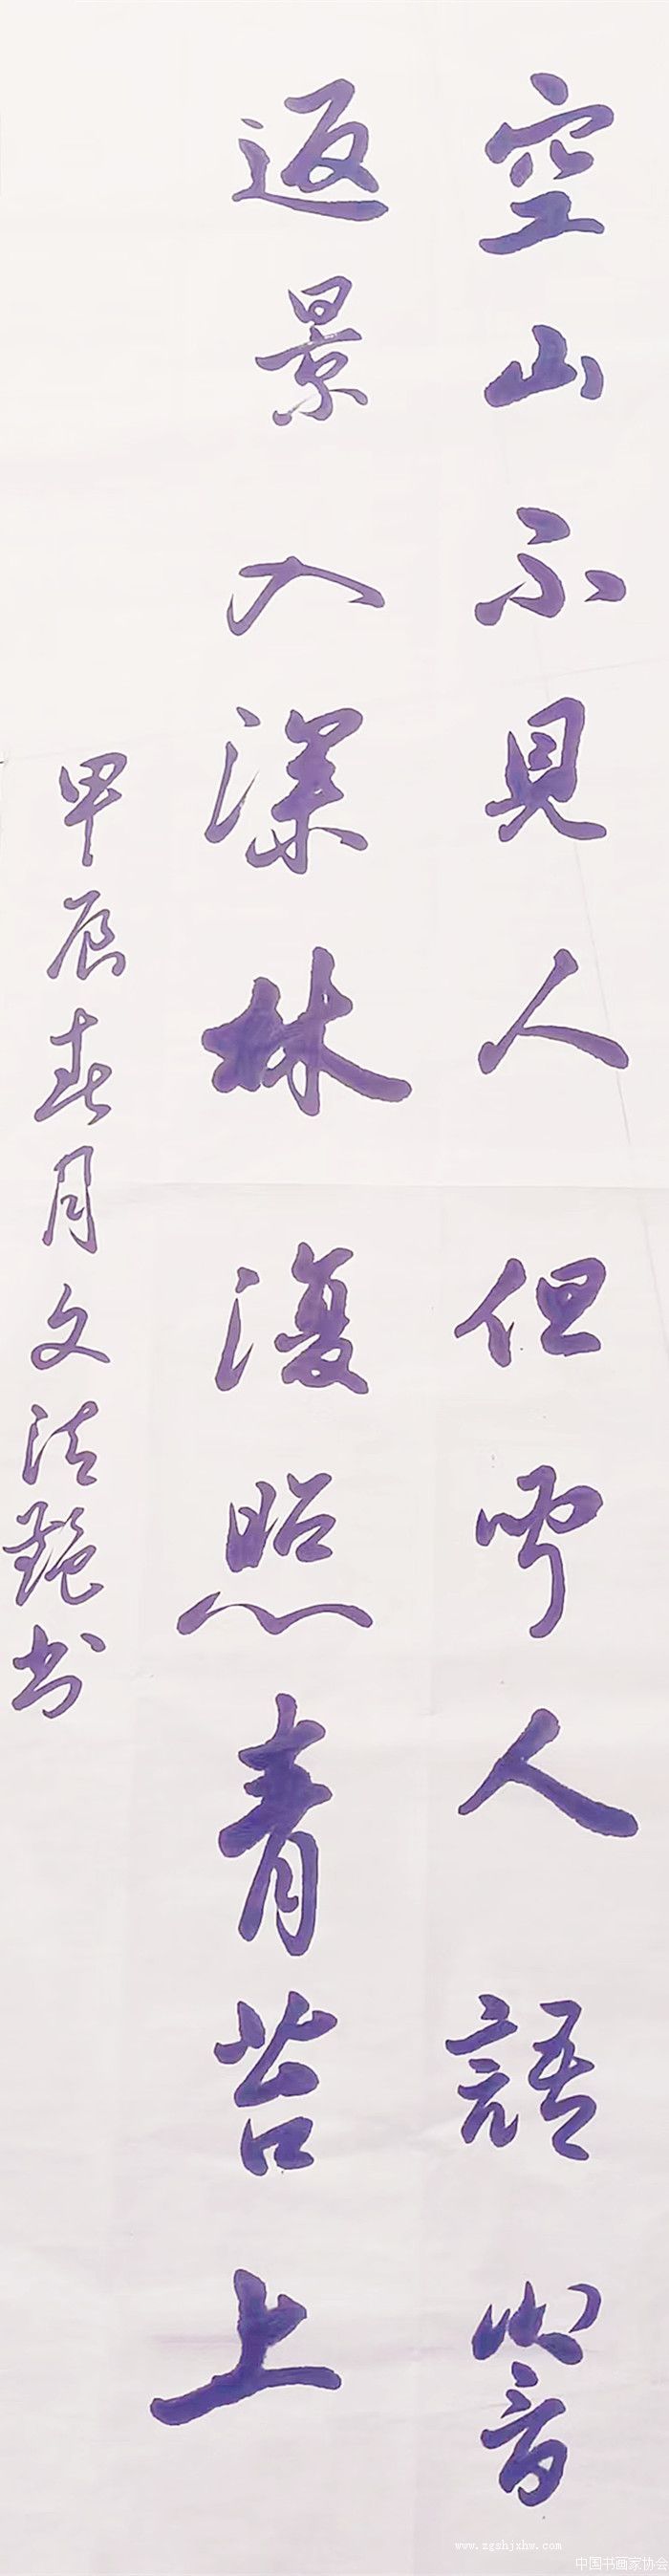 空山不見人但聞人語響
返景入深林復照青苔上
甲辰春月文法艷书
www.zgshjxhw.com
中国书画家协会